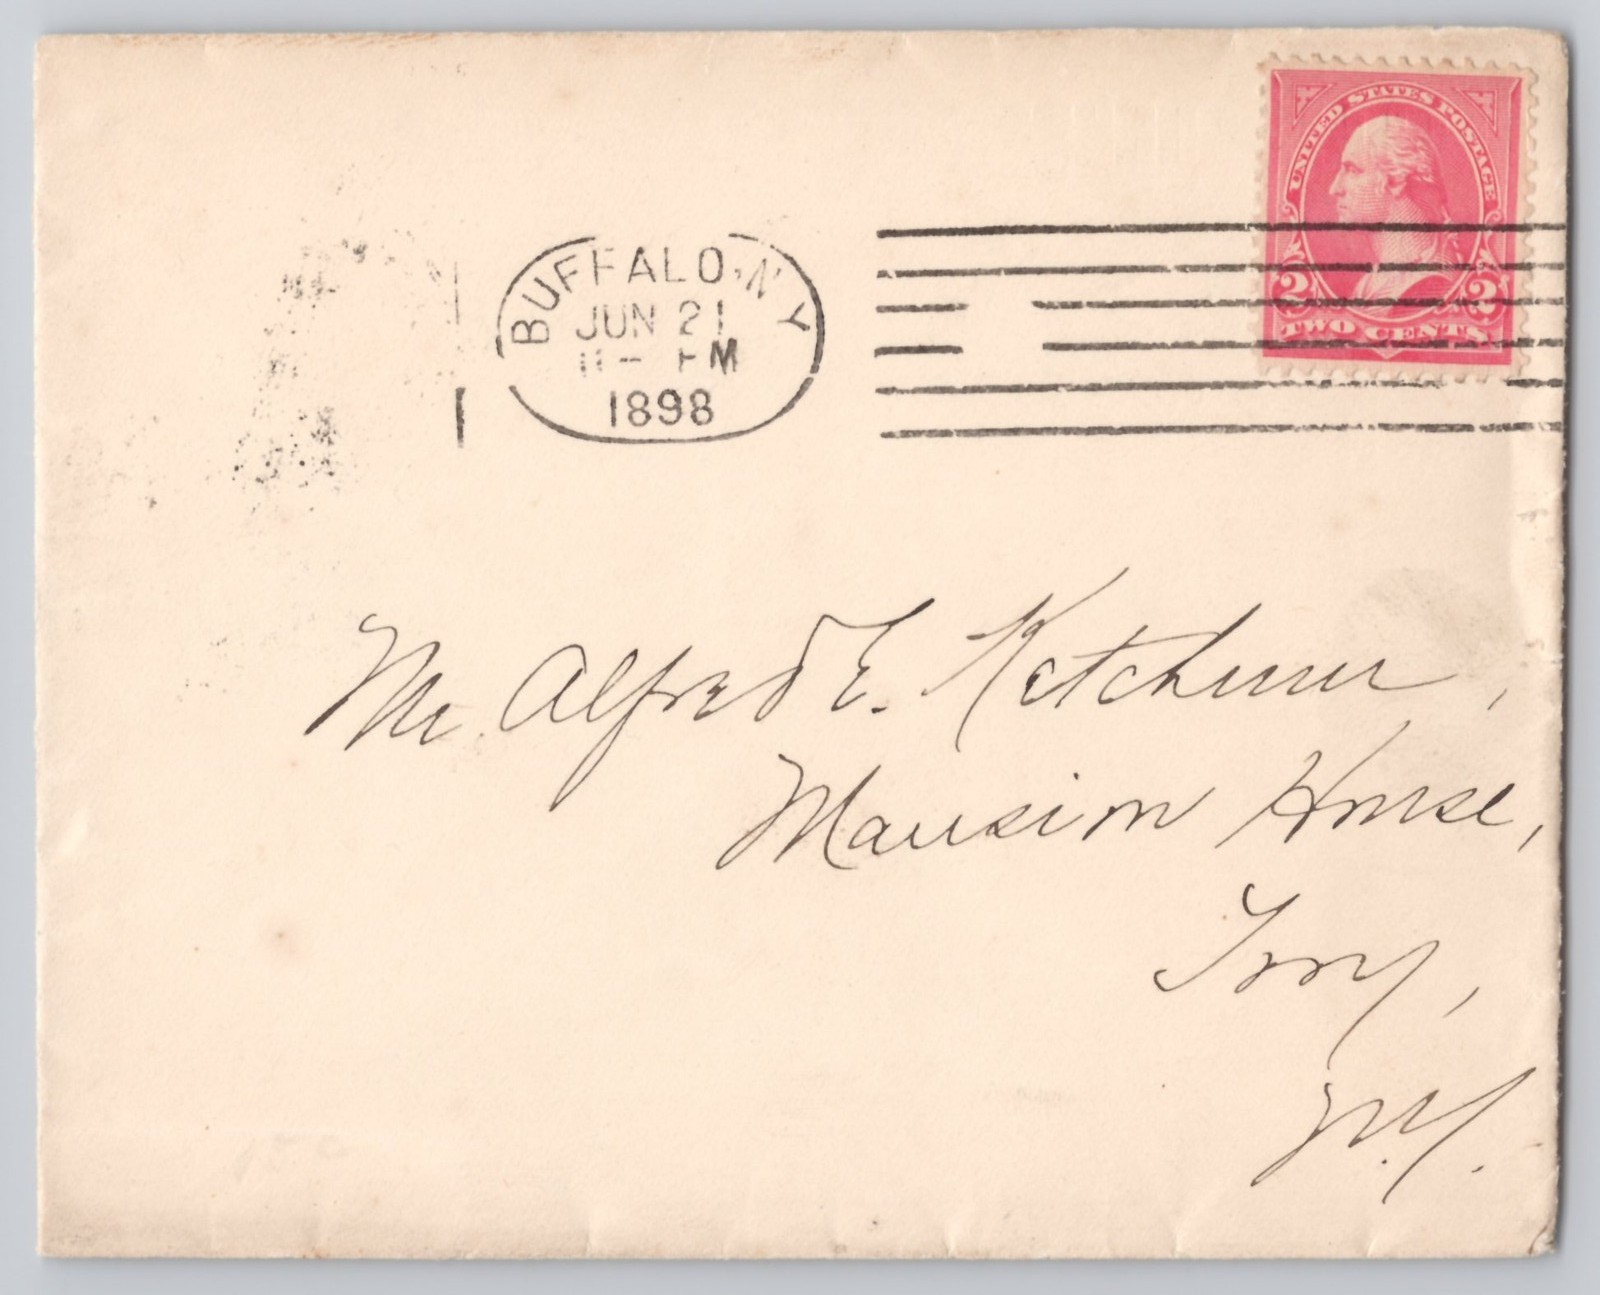 UNITED STATES POSTAGE
2 2
TWO CENTS
BUFFALO, N Y
JUN 21
11 - PM
1898
Mr. Alfred E. Ketchum,
Mansion House,
Troy,
N.Y.